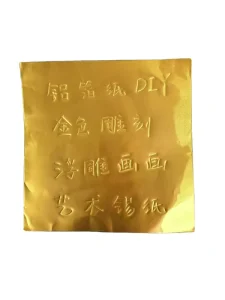 铝箔纸DIY
金色雕刻
浮雕画画
艺术锡纸